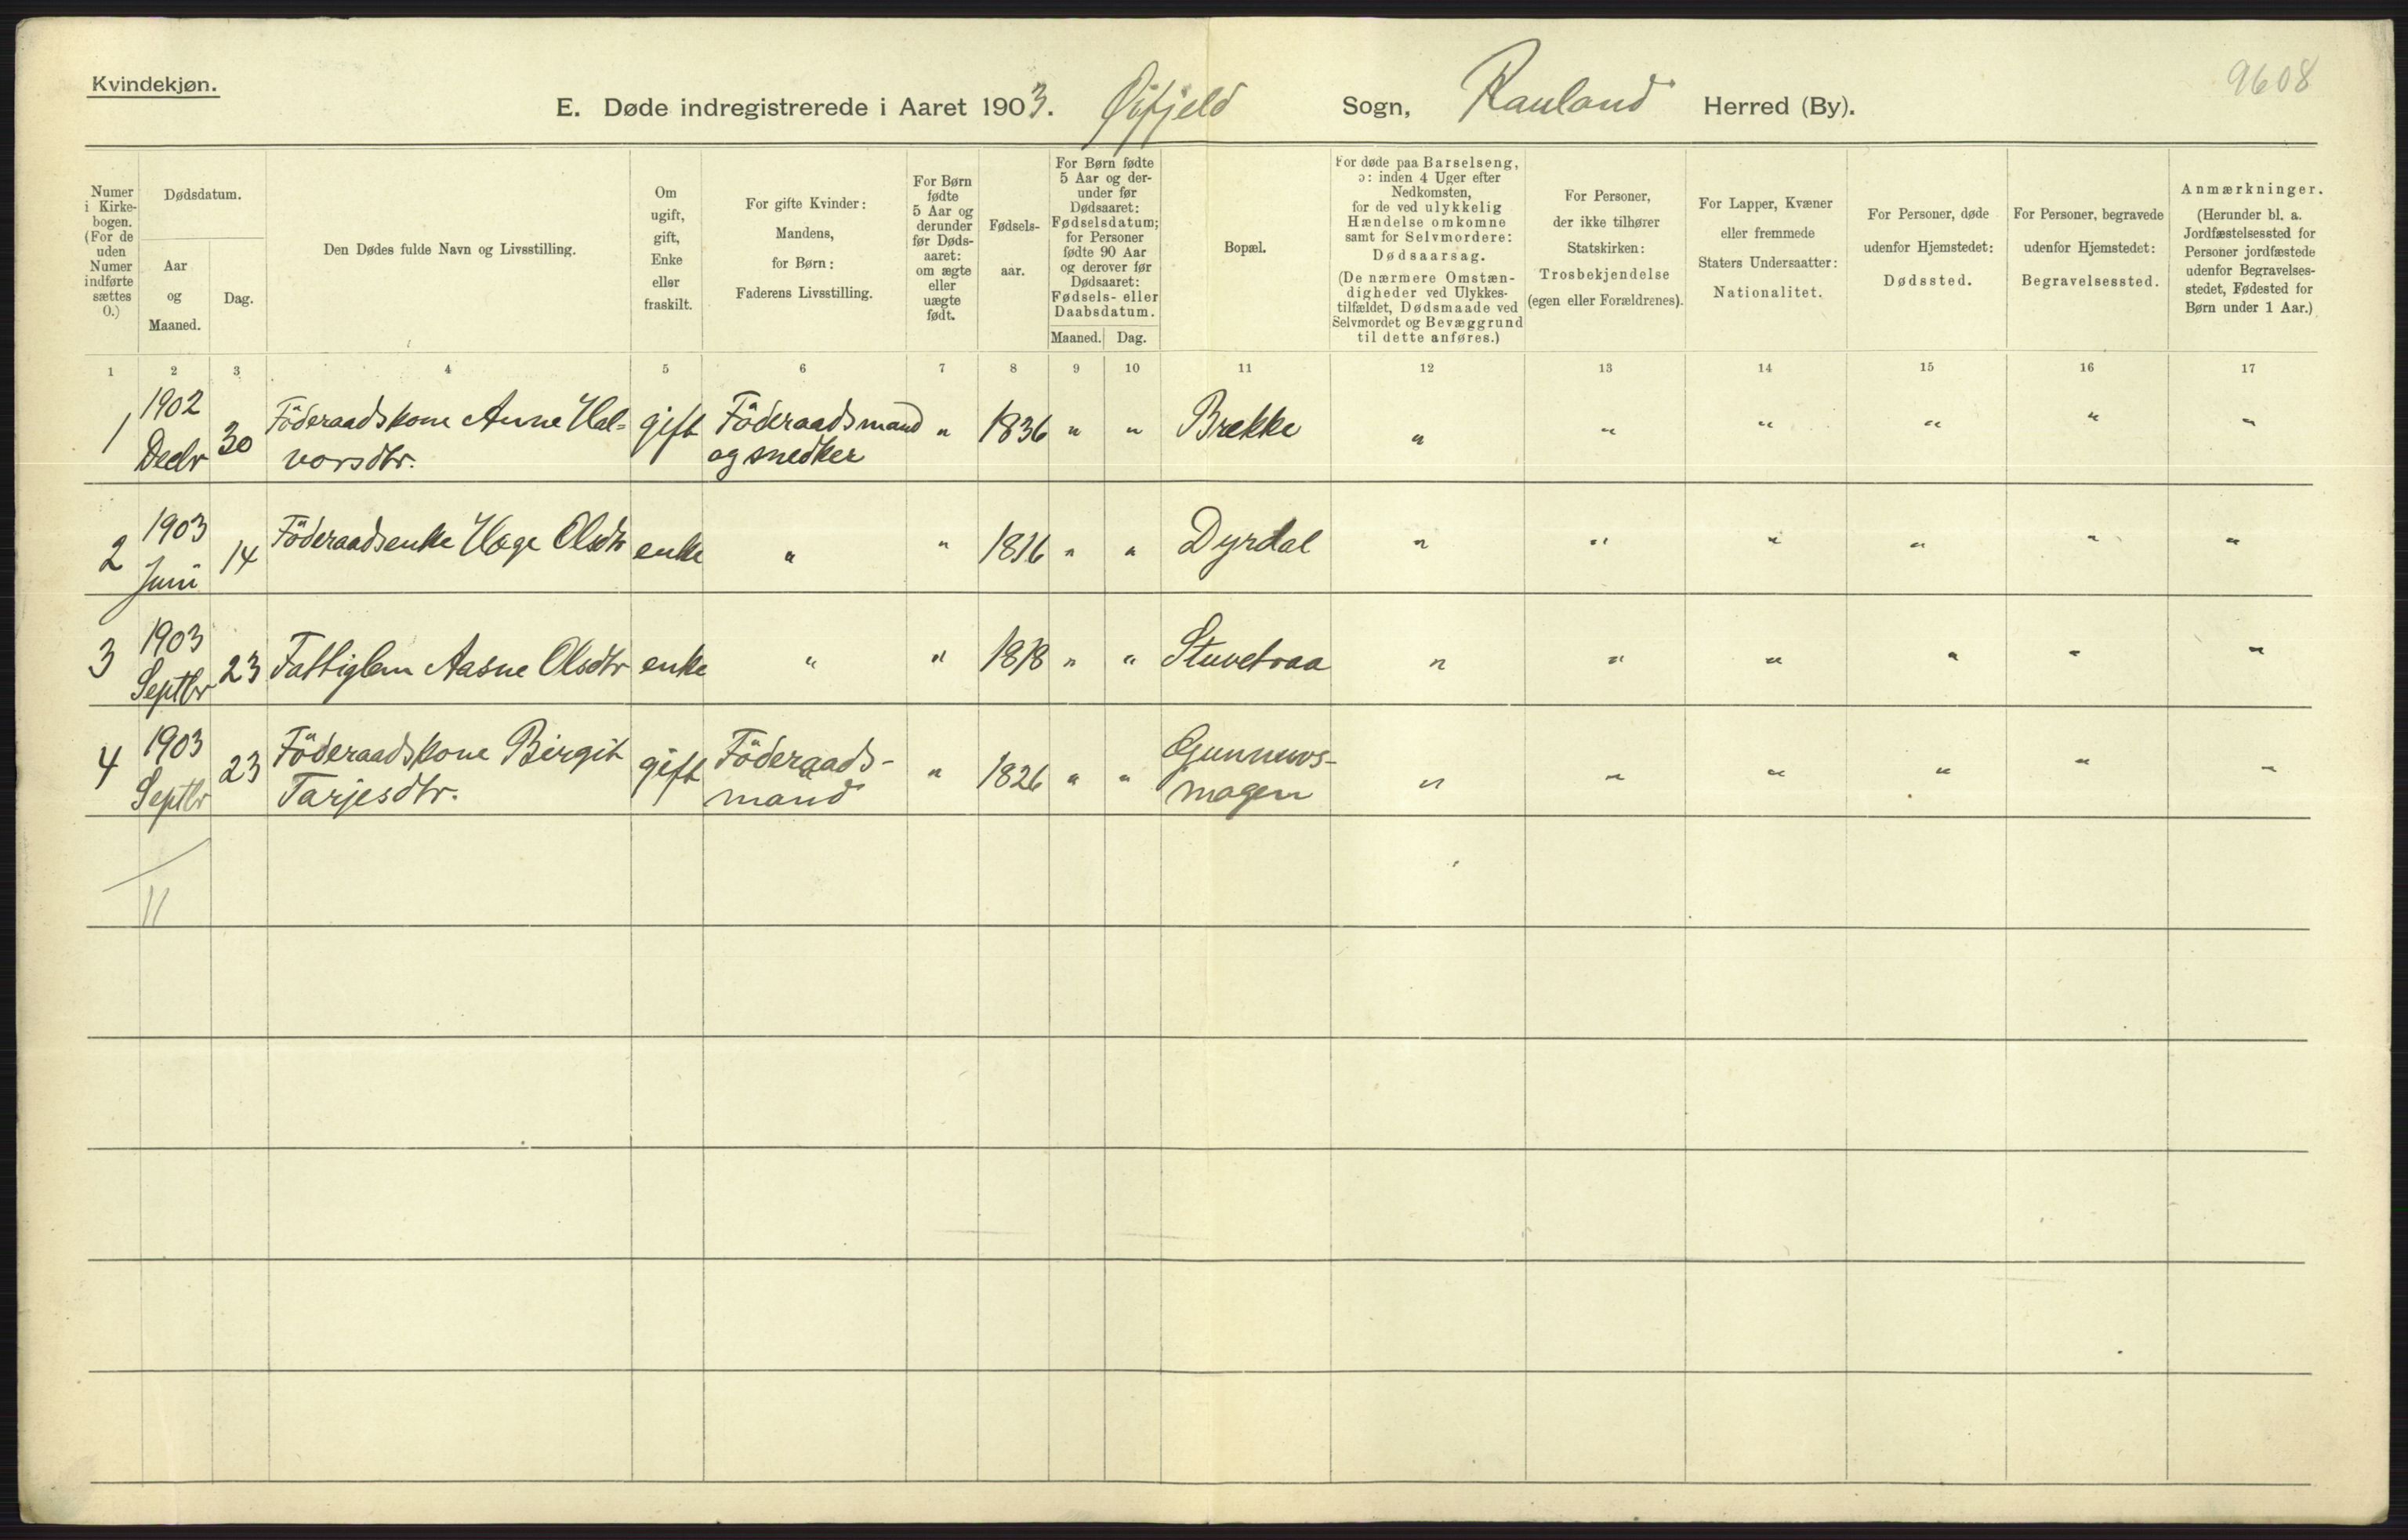 Kvindekjøn.
9608
E. Døde indregistrerede i Aaret 1903. Øifjeld Sogn, Rauland Herred (By).
Numer i Kirke-bogen. (For de uden Numer indførte sættes 0.)
Dødsdatum.
Aar og Maaned.
Dag.
Den Dødes fulde Navn og Livsstilling.
Om ugift, gift, Enke eller fraskilt.
For gifte Kvinder: Mandens, for Børn: Faderens Livsstilling.
For Børn fødte 5 Aar og derunder før Døds-aaret: om ægte eller uægte født.
Fødsels-aar.
For Børn fødte 5 Aar og der-under før Dødsaaret: Fødselsdatum; for Personer fødte 90 Aar og derover før Dødsaaret: Fødsels- eller Daabsdatum.
Maaned. Dag.
Bopæl.
For døde paa Barselseng, ɔ: inden 4 Uger efter Nedkomsten, for de ved ulykkelig Hændelse omkomne samt for Selvmordere: Dødsaarsag. (De nærmere Omstæn-digheder ved Ulykkes-tilfældet, Dødsmaade ved Selvmordet og Bevæggrund til dette anføres.)
For Personer, der ikke tilhører Statskirken: Trosbekjendelse (egen eller Forældrenes).
For Lapper, Kvæner eller fremmede Staters Undersaatter: Nationalitet.
For Personer, døde udenfor Hjemstedet: Dødssted.
For Personer, begravede udenfor Hjemstedet: Begravelsessted.
Anmærkninger. (Herunder bl. a. Jordfæstelsessted for Personer jordfæstede udenfor Begravelses-stedet, Fødested for Børn under 1 Aar.)
1 2 3 4 5 6 7 8 9 10 11 12 13 14 15 16 17
1 1902 Decbr 30 Föderaadskone Anne Hal=vorsdtr. gift Föderaadsmand og snedker " 1836 " " Brekke " " " " " "
2 1903 Juni 14 Föderaadsenke Hæge Olsdtr enke " " 1816 " " Dyrdal " " " " " "
3 1903 Septbr 23 Fattiglem Aasne Olsdtr enke " " 1818 " " Stuvetraa " " " " " "
4 1903 Septbr 23 Föderaadskone Birgit Tarjesdtr. gift Föderaads-mand " 1826 " " Gunnuvs-mogen " " " " " "